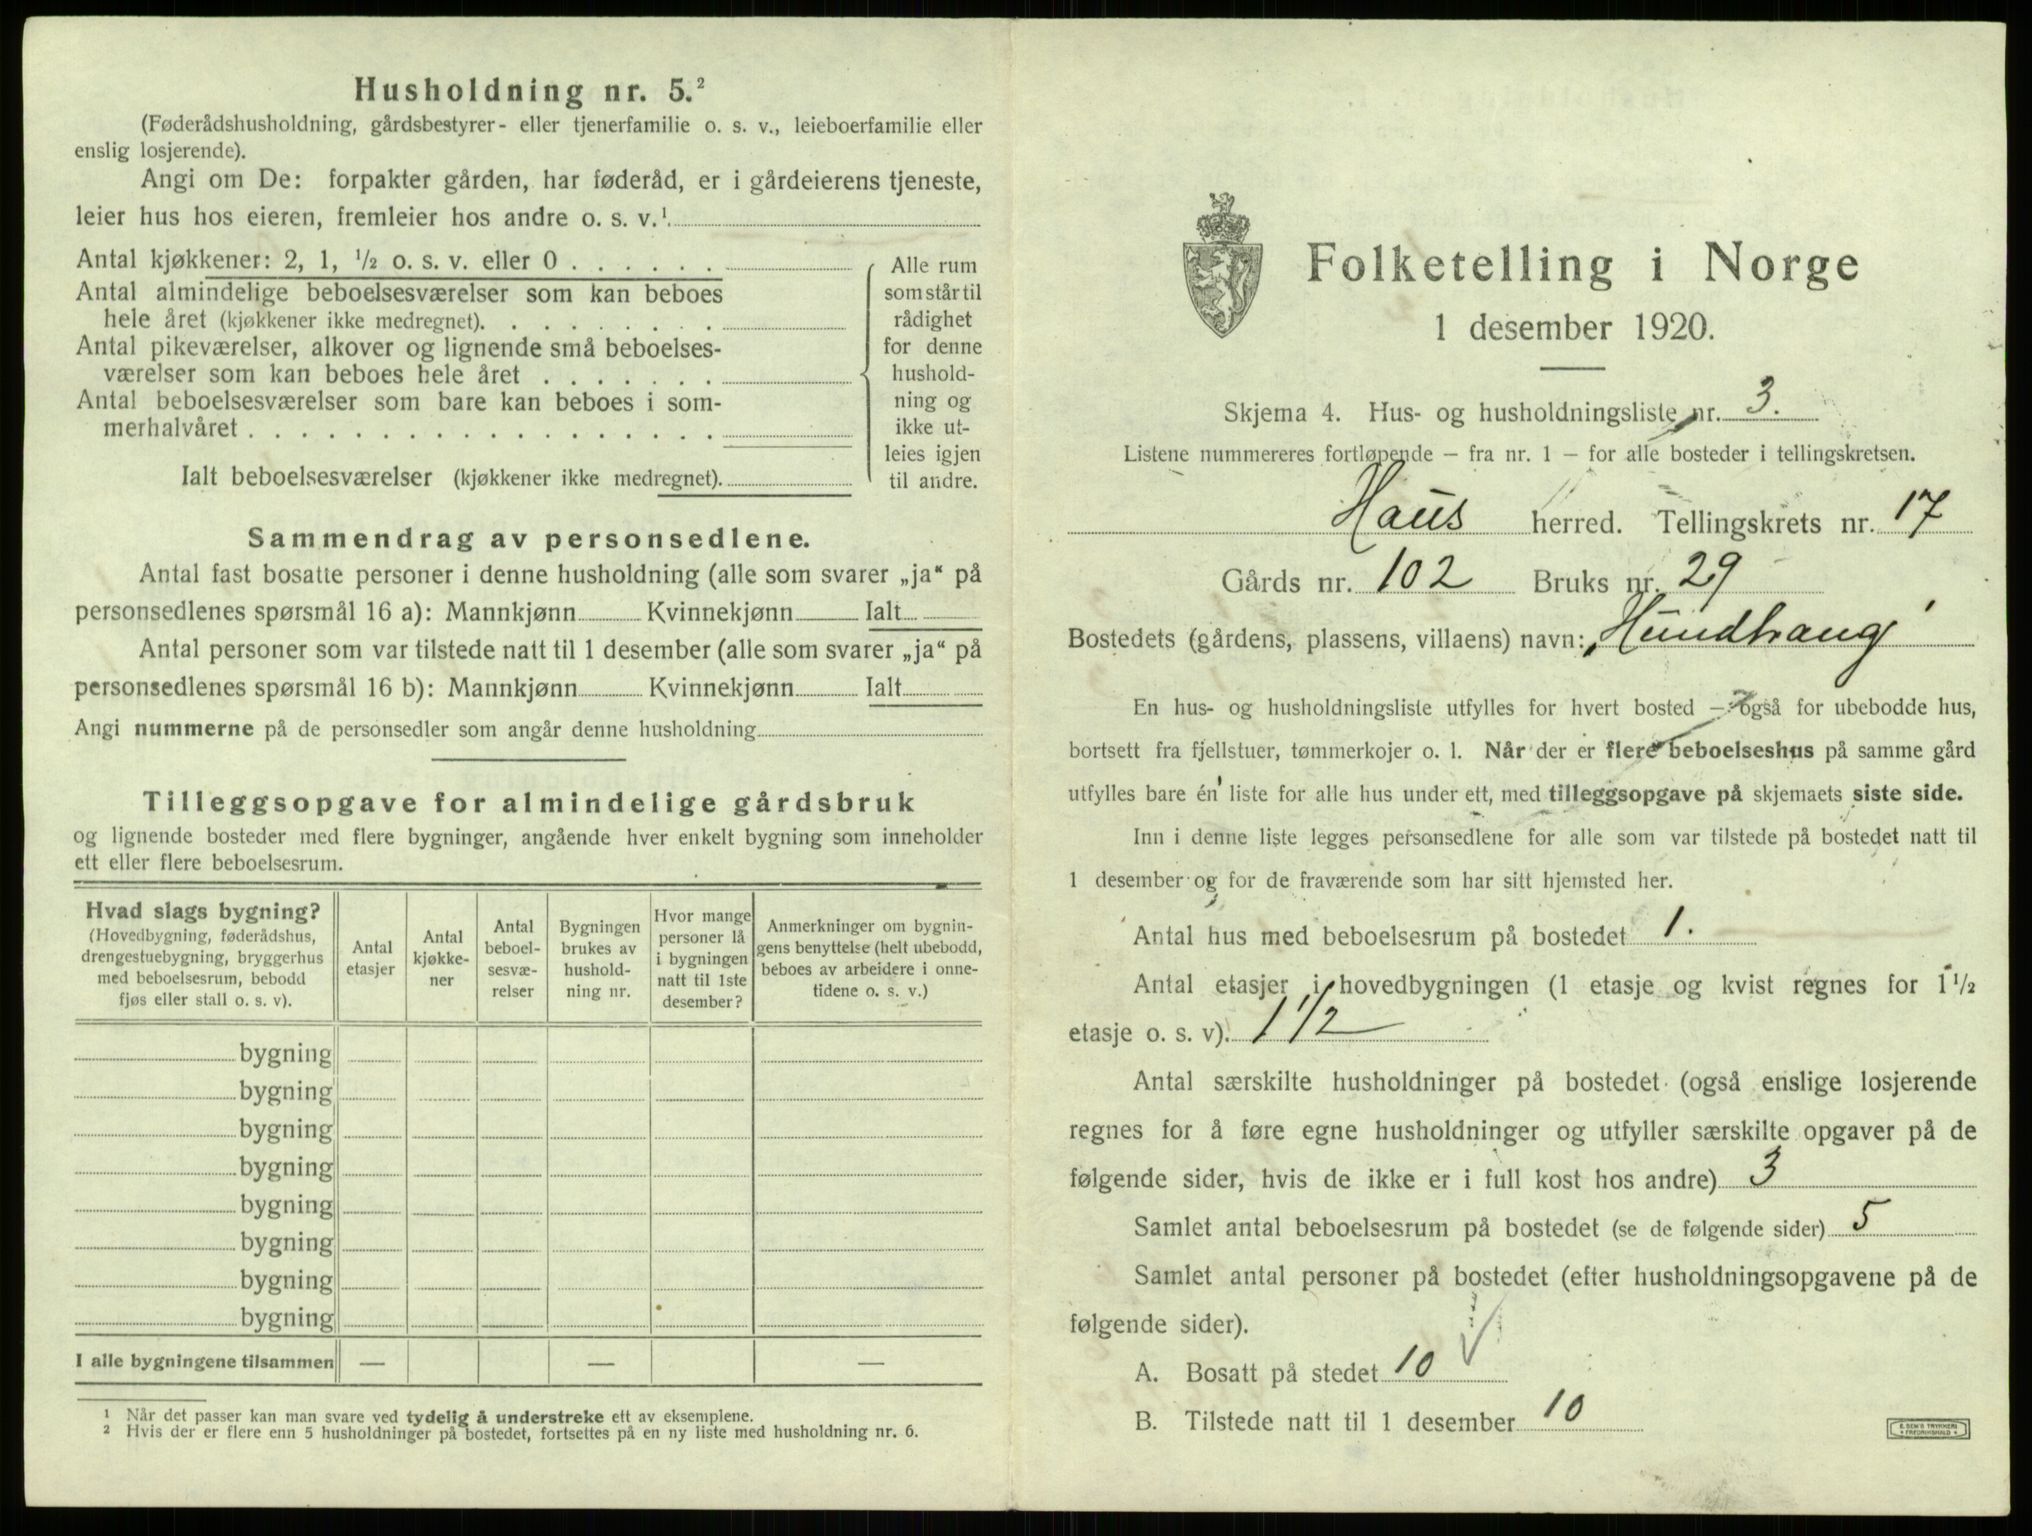 Husholdning nr. 5.²
(Føderådshusholdning, gårdsbestyrer- eller tjenerfamilie o. s. v., leieboerfamilie eller
enslig losjerende).
Angi om De: forpakter gården, har føderåd, er i gårdeierens tjeneste,
leier hus hos eieren, fremleier hos andre o. s. v.¹
Antal kjøkkener: 2, 1, ½ o. s. v. eller 0 . . . . . .
Antal almindelige beboelsesværelser som kan beboes
hele året (kjøkkener ikke medregnet). . . . . . . .
Antal pikeværelser, alkover og lignende små beboelses-
værelser som kan beboes hele året . . . . . . .
Antal beboelsesværelser som bare kan beboes i som-
merhalvåret . . . . . . . . . . . . . . . . . .
Ialt beboelsesværelser (kjøkkener ikke medregnet).
Alle rum
som står til
rådighet
for denne
hushold-
ning og
ikke ut-
leies igjen
til andre.
Sammendrag av personsedlene.
Antal fast bosatte personer i denne husholdning (alle som svarer „ja“ på
personsedlenes spørsmål 16 a): Mannkjønn Kvinnekjønn Ialt
Antal personer som var tilstede natt til 1 desember (alle som svarer „ja“ på
personsedlenes spørsmål 16 b): Mannkjønn Kvinnekjønn Ialt
Angi nummerne på de personsedler som angår denne husholdning
Tilleggsopgave for almindelige gårdsbruk
og lignende bosteder med flere bygninger, angående hver enkelt bygning som inneholder
ett eller flere beboelsesrum.
Hvad slags bygning?
(Hovedbygning, føderådshus,
drengestuebygning, bryggerhus
med beboelsesrum, bebodd
fjøs eller stall o. s. v).
Antal
etasjer
Antal
kjøkke-
ner
Antal
beboel-
sesvæ-
relser
Bygningen
brukes av
hushold-
ning nr.
Hvor mange
personer lå
i bygningen
natt til 1ste
desember?
Anmerkninger om bygnin-
gens benyttelse (helt ubebodd,
beboes av arbeidere i onne-
tidene o. s. v.)
bygning
bygning
bygning
bygning
bygning
bygning
bygning
bygning
I alle bygningene tilsammen — — —
¹ Når det passer kan man svare ved tydelig å understreke ett av eksemplene.
² Hvis der er flere enn 5 husholdninger på bostedet, fortsettes på en ny liste med husholdning nr. 6.
Folketelling i Norge
1 desember 1920.
Skjema 4. Hus- og husholdningsliste nr. 3.
Listene nummereres fortløpende — fra nr. 1 — for alle bosteder i tellingskretsen.
Haus herred. Tellingskrets nr. 17
Gårds nr. 102 Bruks nr. 29
Bostedets (gårdens, plassens, villaens) navn: Hundhaug
En hus- og husholdningsliste utfylles for hvert bosted — også for ubebodde hus,
bortsett fra fjellstuer, tømmerkojer o. l. Når der er flere beboelseshus på samme gård
utfylles bare én liste for alle hus under ett, med tilleggsopgave på skjemaets siste side.
Inn i denne liste legges personsedlene for alle som var tilstede på bostedet natt til
1 desember og for de fraværende som har sitt hjemsted her.
Antal hus med beboelsesrum på bostedet 1.
Antal etasjer i hovedbygningen (1 etasje og kvist regnes for 1½
etasje o. s. v). 1 1/2
Antal særskilte husholdninger på bostedet (også enslige losjerende
regnes for å føre egne husholdninger og utfyller særskilte opgaver på de
følgende sider, hvis de ikke er i full kost hos andre) 3
Samlet antal beboelsesrum på bostedet (se de følgende sider) 5
Samlet antal personer på bostedet (efter husholdningsopgavene på de
følgende sider).
A. Bosatt på stedet 10
B. Tilstede natt til 1 desember 10
E. SEM'S TRYKKERI
• FREDRIKSHALD •